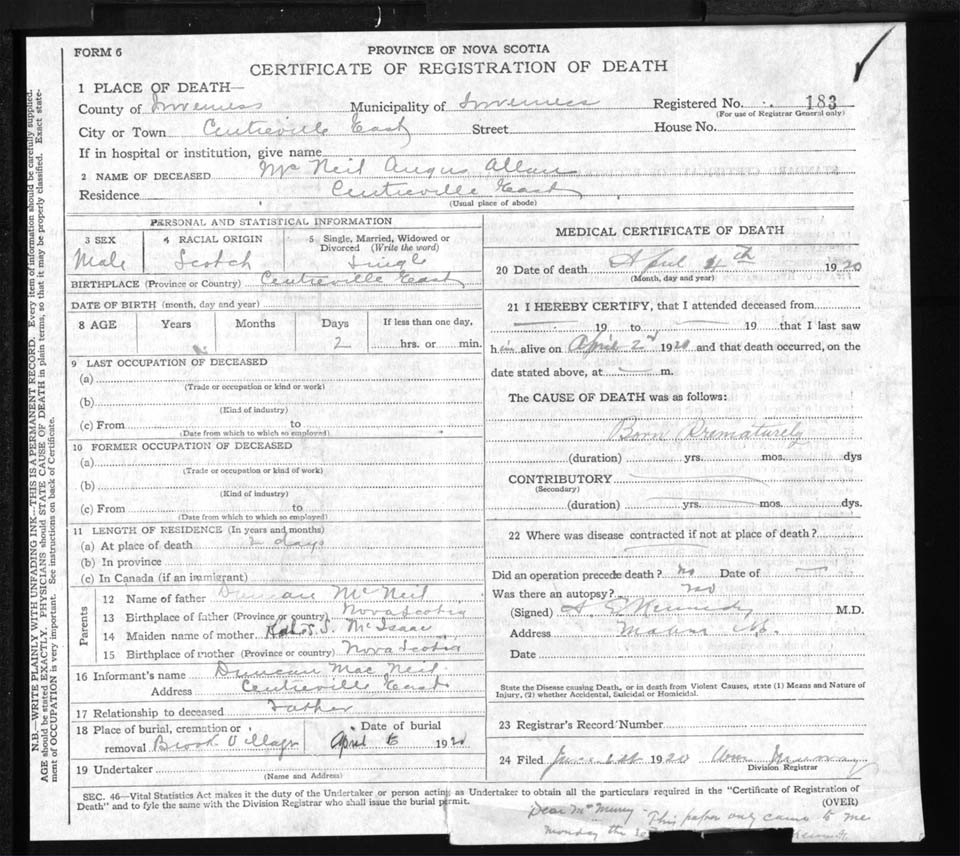 FORM 6
PROVINCE OF NOVA SCOTIA
CERTIFICATE OF REGISTRATION OF DEATH
1 PLACE OF DEATH—
County of Inverness Municipality of Inverness Registered No. 183
(For use of Registrar General only)
City or Town Centreville East Street House No.
If in hospital or institution, give name
2 NAME OF DECEASED Mc Neil Angus Allan
Residence Centreville East
(Usual place of abode)
PERSONAL AND STATISTICAL INFORMATION
3 SEX 4 RACIAL ORIGIN 5 Single, Married, Widowed or Divorced (Write the word)
Male Scotch Single
BIRTHPLACE (Province or Country) Centreville East
DATE OF BIRTH (month, day and year)
8 AGE Years Months Days If less than one day,
2 hrs. or min.
9 LAST OCCUPATION OF DECEASED
(a)
(Trade or occupation or kind or work)
(b)
(Kind of industry)
(c) From to
(Date from which to which so employed)
10 FORMER OCCUPATION OF DECEASED
(a)
(Trade or occupation or kind of work)
(b)
(Kind of industry)
(c) From to
(Date from which to which so employed)
11 LENGTH OF RESIDENCE (In years and months)
(a) At place of death 2 days
(b) In province
(c) In Canada (if an immigrant)
Parents
12 Name of father Duncan McNeil
13 Birthplace of father (Province or Country) Nova Scotia
14 Maiden name of mother McIsaac
15 Birthplace of mother (Province or country) Nova Scotia
16 Informant's name Duncan Mac Neil
Address Centreville East
17 Relationship to deceased Father
18 Place of burial, cremation or removal Brook Village Date of burial April 1920
19 Undertaker
(Name and Address)
MEDICAL CERTIFICATE OF DEATH
20 Date of death April 4th 1920
(Month, day and year)
21 I HEREBY CERTIFY, that I attended deceased from
19 to 19 that I last saw
him alive on April 2nd 1920 and that death occurred, on the
date stated above, at m.
The CAUSE OF DEATH was as follows:
Born Prematurely
(duration) yrs. mos. dys
CONTRIBUTORY
(Secondary)
(duration) yrs. mos. dys.
22 Where was disease contracted if not at place of death?
Did an operation precede death? No Date of
Was there an autopsy? no
(Signed) Kennedy M.D.
Address Mabou
Date
State the Disease causing Death, or in death from Violent Causes, state (1) Means and Nature of
Injury, (2) whether Accidental, Suicidal or Homicidal.
23 Registrar's Record Number
24 Filed 1920 Wm Murray
Division Registrar
SEC. 46—Vital Statistics Act makes it the duty of the Undertaker or person acting as Undertaker to obtain all the particulars required in the "Certificate of Registration of
Death" and to fyle the same with the Division Registrar who shall issue the burial permit.
(OVER)
Dear Mr Murray This paper only came to me
Monday the
N.B.—WRITE PLAINLY WITH UNFADING INK—THIS IS A PERMANENT RECORD. Every item of information should be carefully supplied.
AGE should be stated EXACTLY. PHYSICIANS should STATE CAUSE OF DEATH in plain terms, so that it may be properly classified. Exact state-
ment of OCCUPATION is very important. See instructions on back of Certificate.